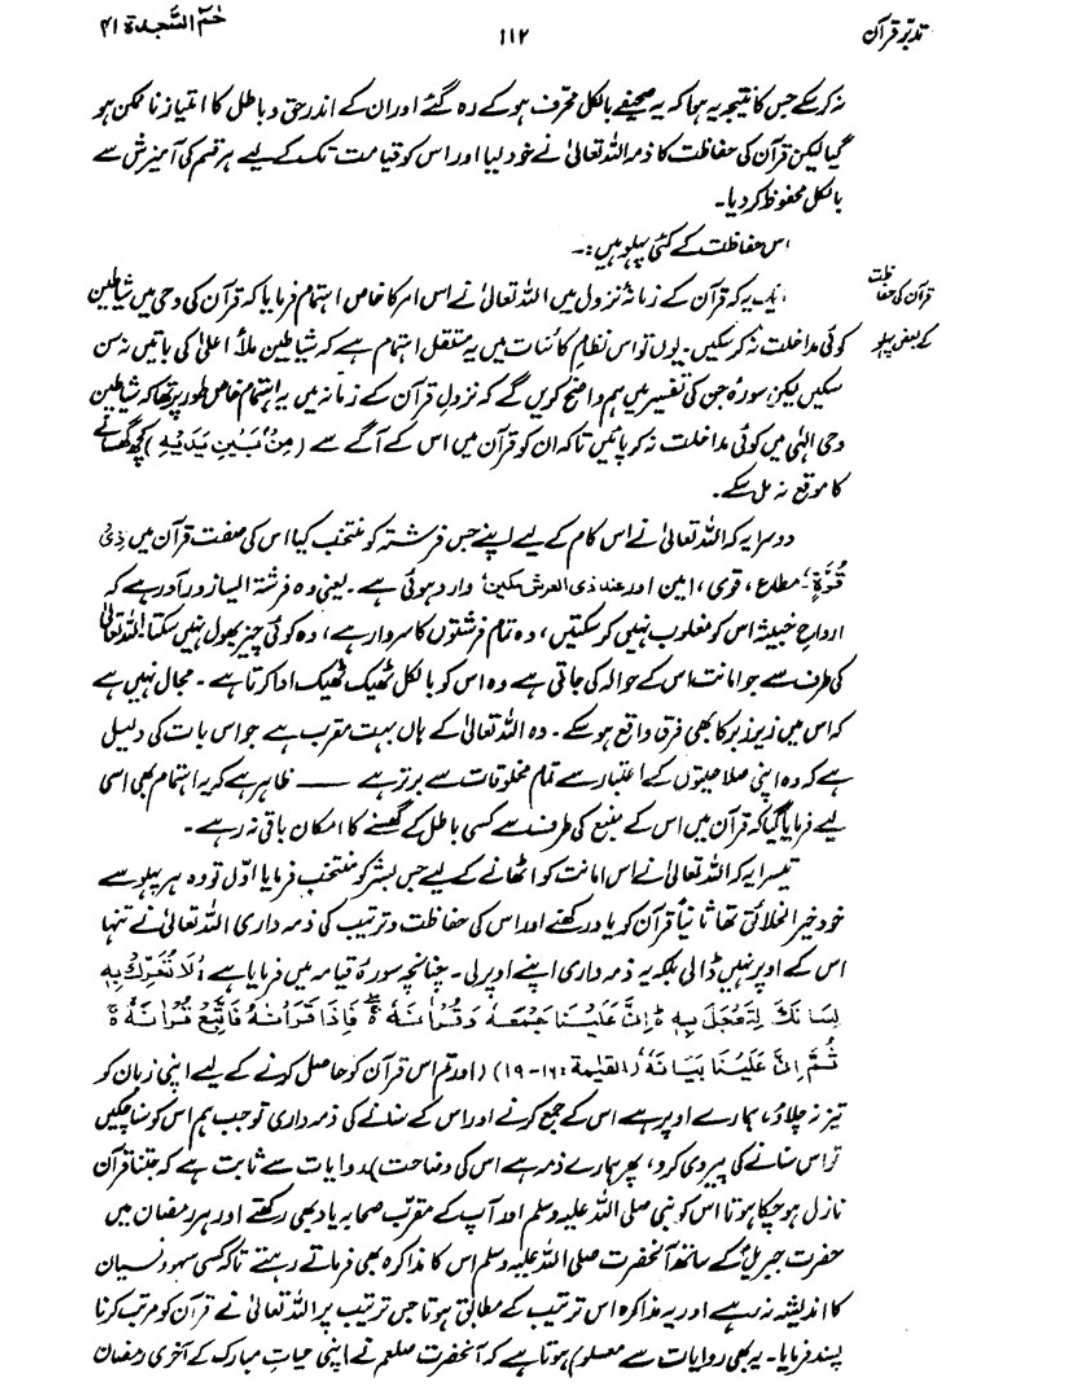 تدبّر قرآن ۱۱۲ حٰمٓ السَّجدة ۴۱
نہ کر سکے جس کا نتیجہ یہ ہوا کہ یہ صحیفے بالکل محرّف ہو کے رہ گئے اور ان کے اندر حق و باطل کا امتیاز ناممکن ہو
گیا لیکن قرآن کی حفاظت کا ذمہ اللہ تعالیٰ نے خود لیا اور اس کو قیامت تک کے لیے ہر قسم کی آمیزش سے
بالکل محفوظ کر دیا۔
اس حفاظت کے کئی پہلو ہیں:۔
قرآن کی حفاظت
کے بعض پہلو
ایک یہ کہ قرآن کے زمانۂ نزول میں اللہ تعالیٰ نے اس امر کا خاص اہتمام فرمایا کہ قرآن کی وحی میں شیاطین
کوئی مداخلت نہ کر سکیں۔ یوں تو اس نظامِ کائنات میں یہ مستقل اہتمام ہے کہ شیاطین ملأ اعلیٰ کی باتیں نہ سن
سکیں لیکن سورۂ جن کی تفسیر میں ہم واضح کریں گے کہ نزولِ قرآن کے زمانہ میں یہ اہتمام خاص طور پر تھا کہ شیاطین
وحی الٰہی میں کوئی مداخلت نہ کر پائیں تاکہ ان کو قرآن میں اس کے آگے سے (مِنْۢ بَيْنِ يَدَيْهِ) کچھ گھسانے
کا موقع نہ مل سکے۔
دوسرا یہ کہ اللہ تعالیٰ نے اس کام کے لیے اپنے جس فرشتہ کو منتخب کیا اس کی صفت قرآن میں ذِیْ
قُوَّةٍ، مطاع، قوی، امین اور عند ذی العرش مکین، وارد ہوئی ہے۔ یعنی وہ فرشتہ ایسا زور آور ہے کہ
ارواحِ خبیثہ اس کو مغلوب نہیں کر سکتیں، وہ تمام فرشتوں کا سردار ہے، وہ کوئی چیز بھول نہیں سکتا، اللہ تعالیٰ
کی طرف سے جو امانت اس کے حوالہ کی جاتی ہے وہ اس کو بالکل ٹھیک ٹھیک ادا کرتا ہے۔ مجال نہیں ہے
کہ اس میں زیر زبر کا بھی فرق واقع ہو سکے۔ وہ اللہ تعالیٰ کے ہاں بہت مقرب ہے جو اس بات کی دلیل
ہے کہ وہ اپنی صلاحیتوں کے اعتبار سے تمام مخلوقات سے برتر ہے —— ظاہر ہے کہ یہ اہتمام بھی اسی
لیے فرمایا گیا کہ قرآن میں اس کے منبع کی طرف سے کسی باطل کے گھسنے کا امکان باقی نہ رہے۔
تیسرا یہ کہ اللہ تعالیٰ نے اس امانت کو اٹھانے کے لیے جس بشر کو منتخب فرمایا اوّل تو وہ ہر پہلو سے
خود خیر الخلائق تھا ثانیاً قرآن کو یاد رکھنے اور اس کی حفاظت و ترتیب کی ذمہ داری اللہ تعالیٰ نے تنہا
اس کے اوپر نہیں ڈالی بلکہ یہ ذمہ داری اپنے اوپر لی۔ چنانچہ سورۂ قیامہ میں فرمایا ہے: لَا تُحَرِّكْ بِهٖ
لِسَانَكَ لِتَعْجَلَ بِهٖ ؕ اِنَّ عَلَيْنَا جَمْعَهٗ وَقُرْاٰنَهٗ ۚۖ فَاِذَا قَرَاْنٰهُ فَاتَّبِعْ قُرْاٰنَهٗ ۚ
ثُمَّ اِنَّ عَلَيْنَا بَيَانَهٗ ؕ (القیٰمة: ۱۶-۱۹) (اور تم اس قرآن کو حاصل کرنے کے لیے اپنی زبان کو
تیز نہ چلاؤ، ہمارے اوپر ہے اس کے جمع کرنے اور اس کے سنانے کی ذمہ داری تو جب ہم اس کو سنا چکیں
تو اس سنانے کی پیروی کرو، پھر ہمارے ذمہ ہے اس کی وضاحت) روایات سے ثابت ہے کہ جتنا قرآن
نازل ہو چکا ہوتا اس کو نبی صلی اللہ علیہ وسلم اور آپ کے مقرّب صحابہ یاد بھی رکھتے اور ہر رمضان میں
حضرت جبریلؑ کے ساتھ آنحضرت صلی اللہ علیہ وسلم اس کا مذاکرہ بھی فرماتے رہتے تاکہ کسی سہو و نسیان
کا اندیشہ نہ رہے اور یہ مذاکرہ اس ترتیب کے مطابق ہوتا جس ترتیب پر اللہ تعالیٰ نے قرآن کو مرتب کرنا
پسند فرمایا۔ یہ بھی روایات سے معلوم ہوتا ہے کہ آنحضرت صلعم نے اپنی حیاتِ مبارک کے آخری رمضان